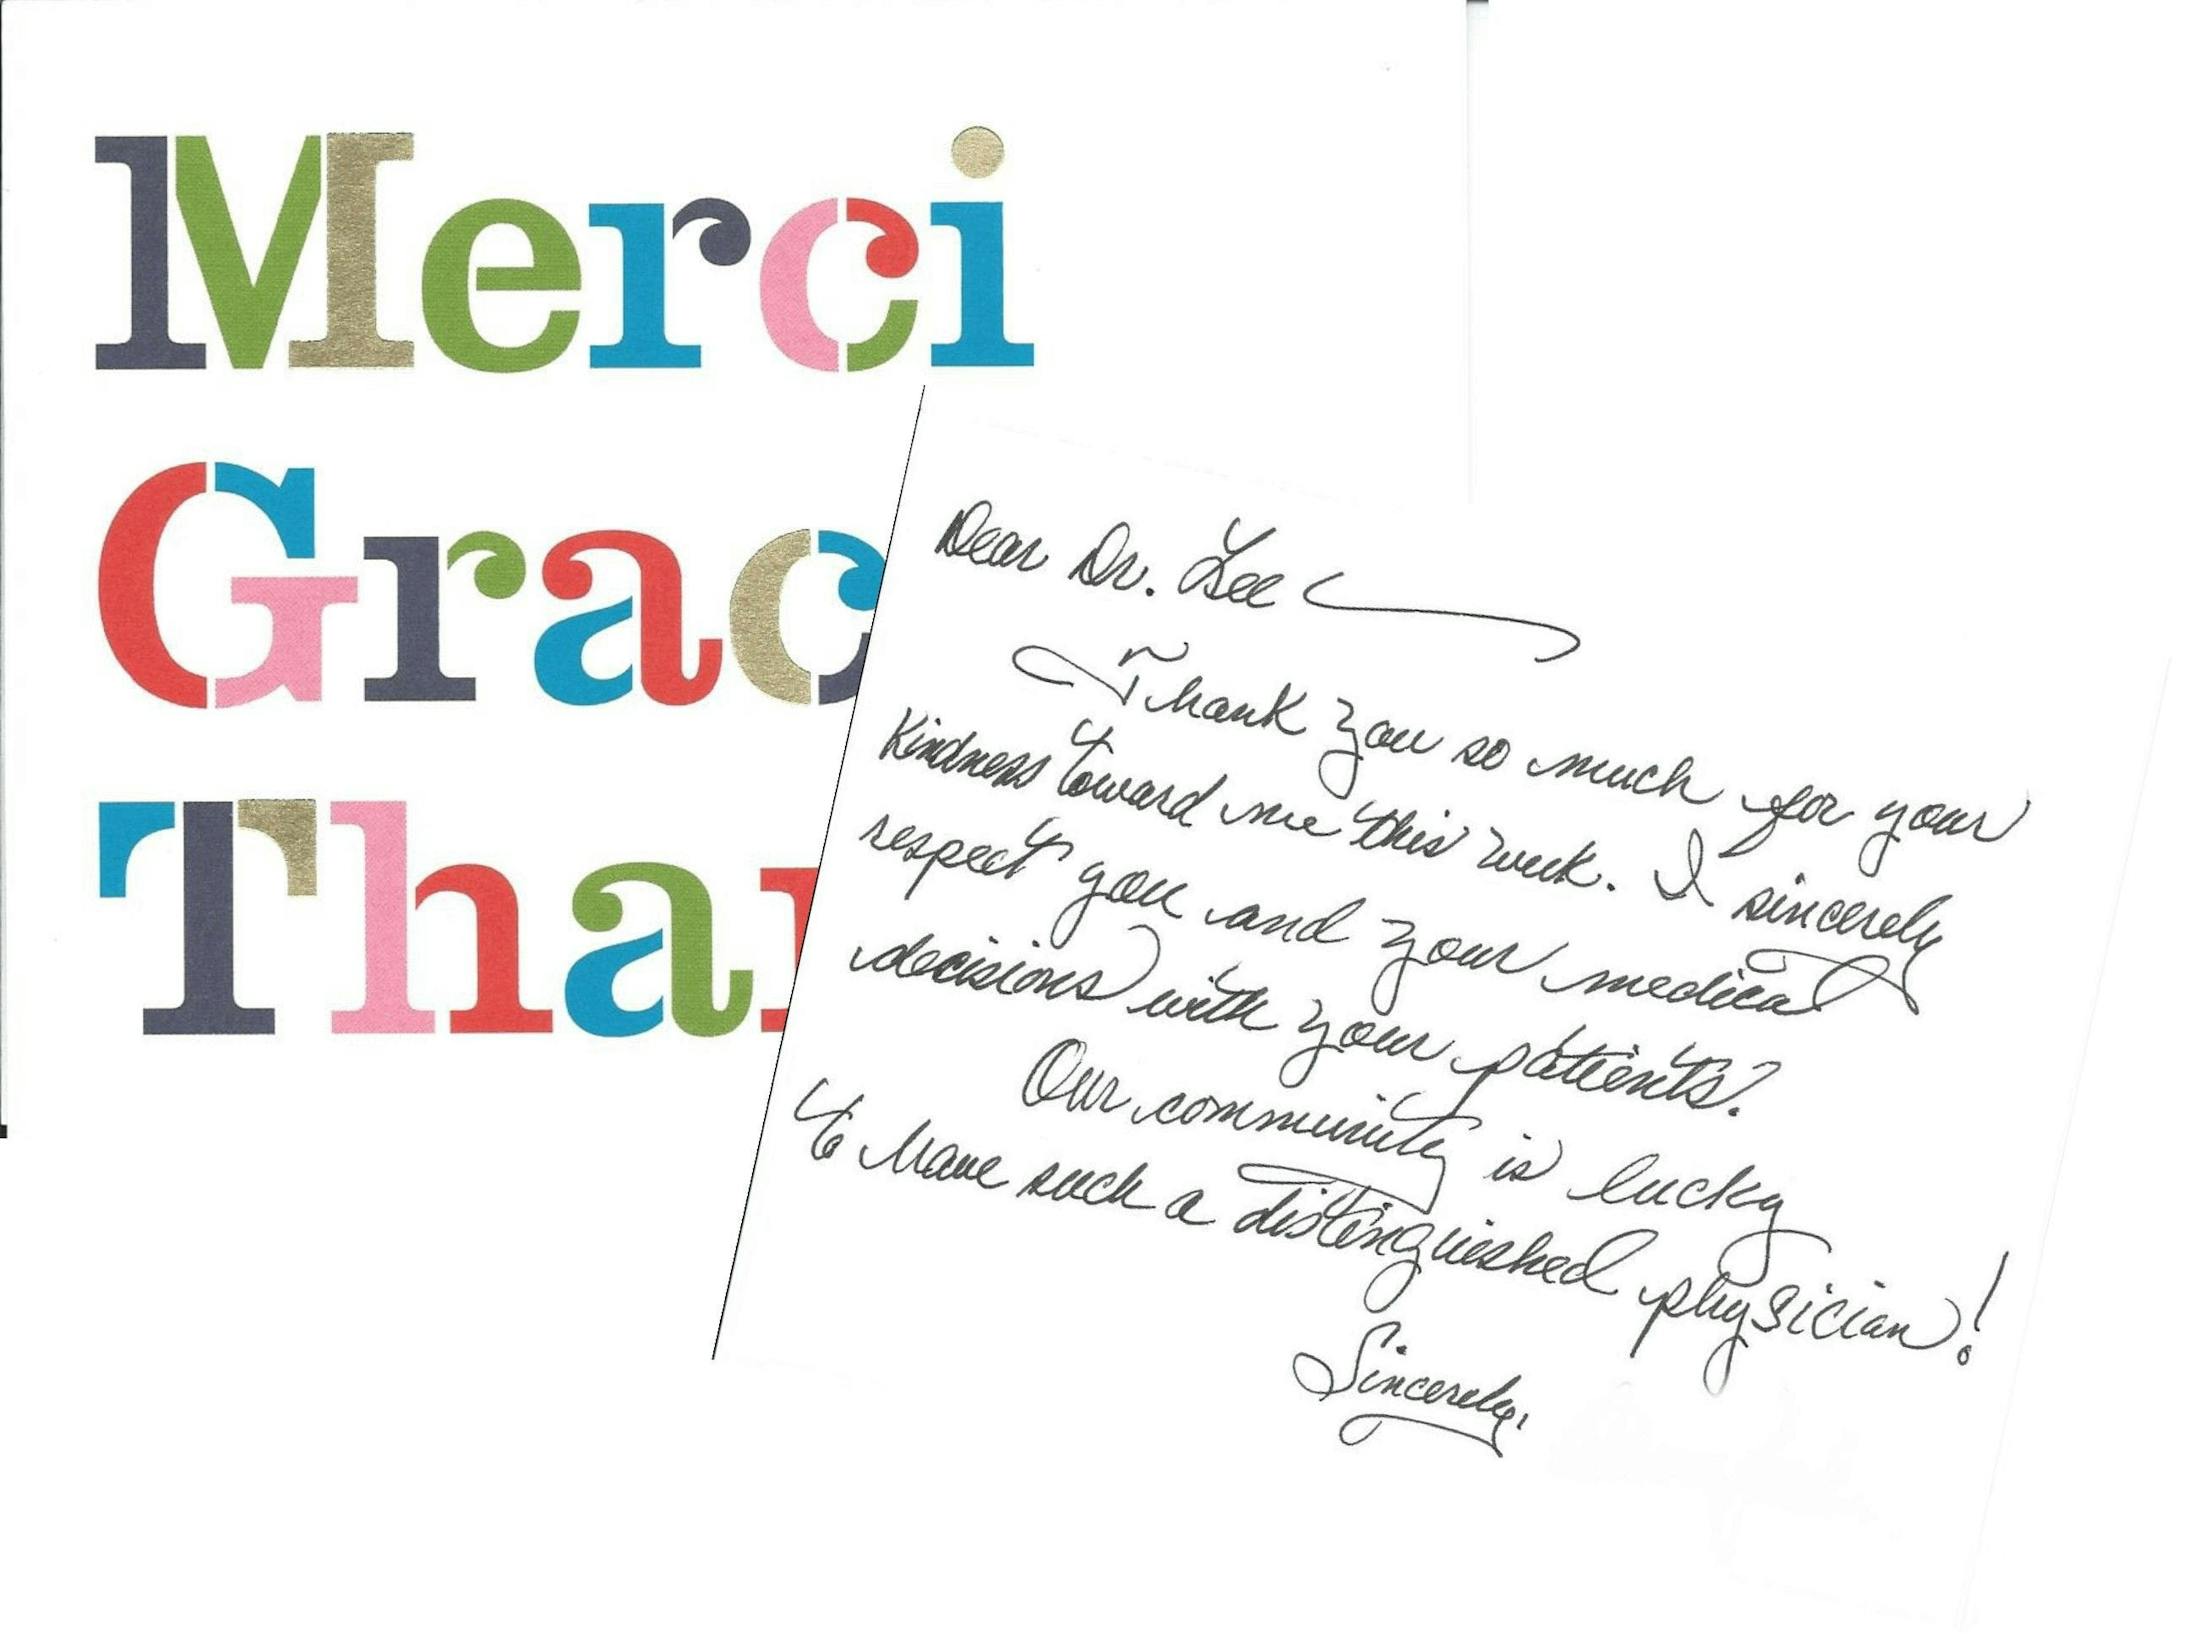 Merci
Grac
Tha
Dear Dr. Lee
Thank you so much for your
kindness toward me this week. I sincerely
respect you and your medical
decisions with your patients.
Our community is lucky
to have such a distinguished physician!
Sincerely,